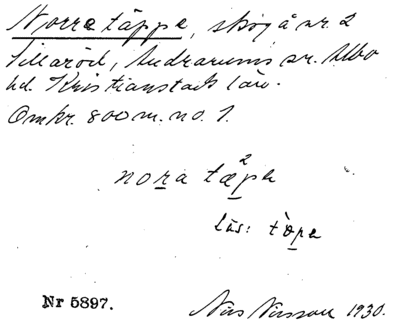 Norra täppa, skog å nr. 2
Sillaröd, Andrarums sn. Albo
hd. Kristianstads län.
Omkr. 800 m. no. 1.
nora tæ²pa
läs: tòpa
Nr 5897.
Nils Nilsson 1930.